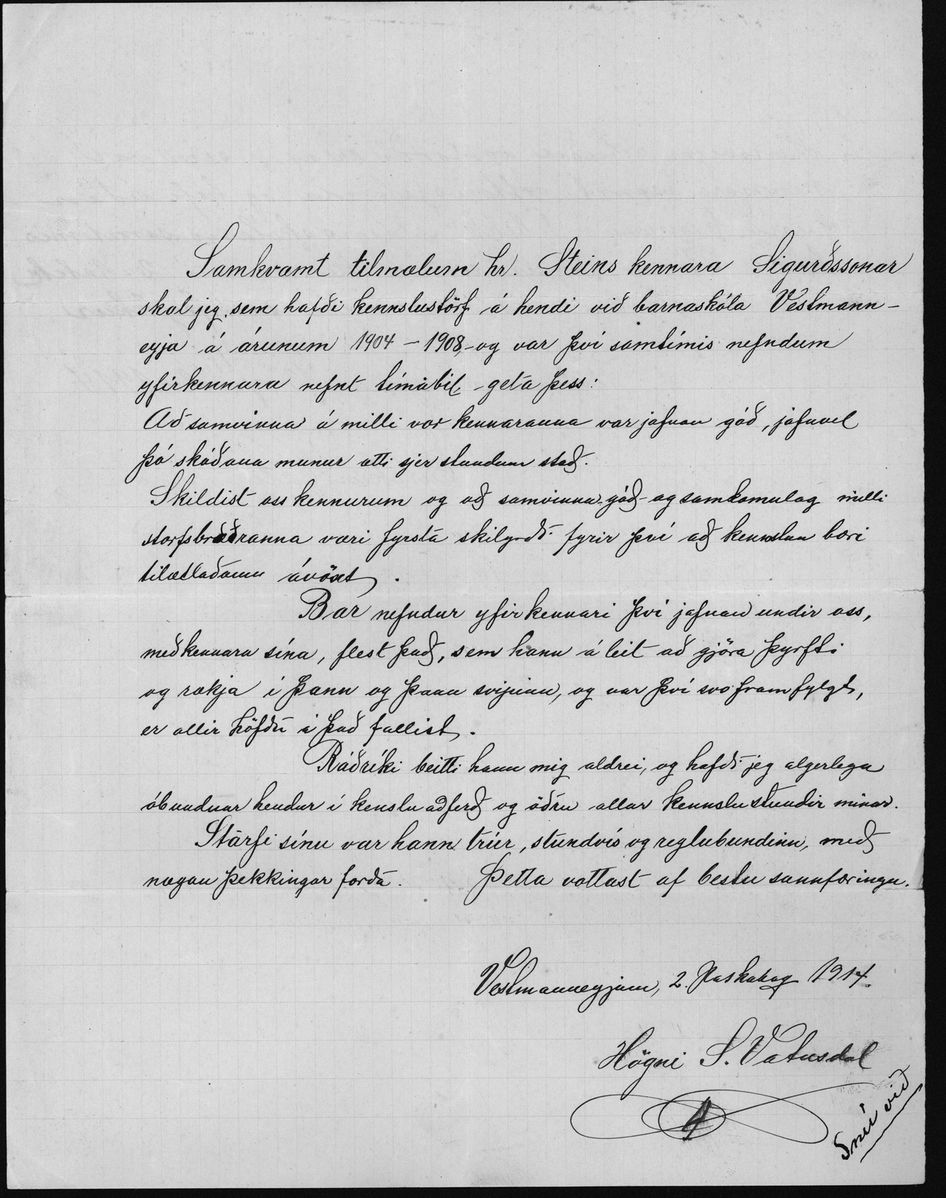 Samkvæmt tilmælum hr. Steins kennara Sigurðssonar
skal jeg, sem hafði kennslustörf á hendi við barnaskóla Vestmann-
eyja á árunum 1904 – 1908, og var því samtímis nefndum
yfirkennara nefnt tímabil – geta þess:
Að samvinna á milli vor kennaranna var jafnan góð, jafnvel
þó skoðana munur ætti sjer stundum stað.
Skildist oss kennurum og að samvinna góð og samkomulag milli
starfsbræðranna væri fyrsta skilyrði fyrir því að kennslan bæri
tilætlaðann ávöxt.
Bar nefndur yfirkennari því jafnan undir oss,
meðkennara sína, flest það, sem hann áleit að gjöra þyrfti
og rækja í þann og þann svipinn, og var því svo framfylgt,
er allir höfðu í það fallist.
Ráðríki beitti hann mig aldrei, og hafði jeg algerlega
óbundnar hendur í kensluaðferð og öðru allar kennslustundir mínar.
Starfi sínu var hann trúr, stundvís og reglubundinn, með
nægan þekkingar forða. Þetta vottast af bestu sannfæringu.
Vestmanneyjum, 2. Páskadag 1914.
Högni S. Vatnsdal
4
Snú við